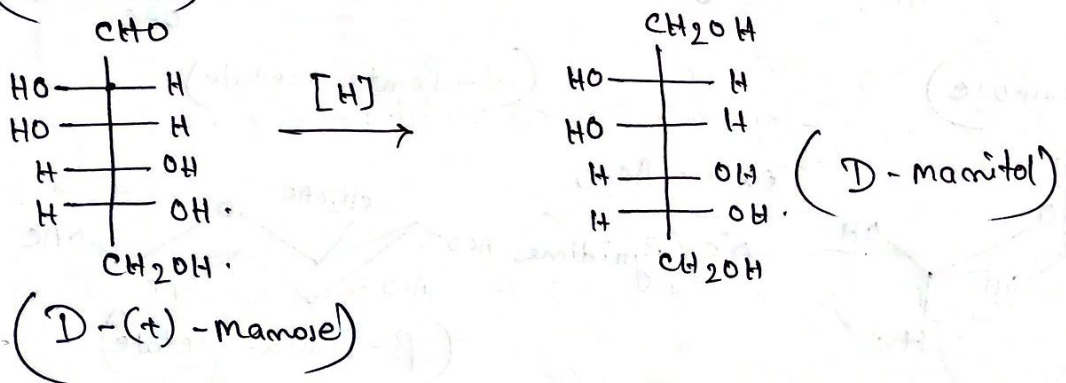 CHO
HO H
HO H
H OH
H OH.
CH2OH.
(D-(+)-mamose)
[H]
CH2OH
HO H
HO H
H OH
H OH.
CH2OH
(D-mamitol)